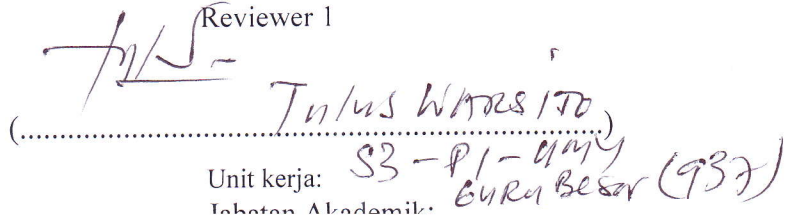 Reviewer 1
Tulus WARSITO
(........................................................)
Unit kerja: S3 - PI - UMY
Jabatan Akademik: GURU BESAR (937)